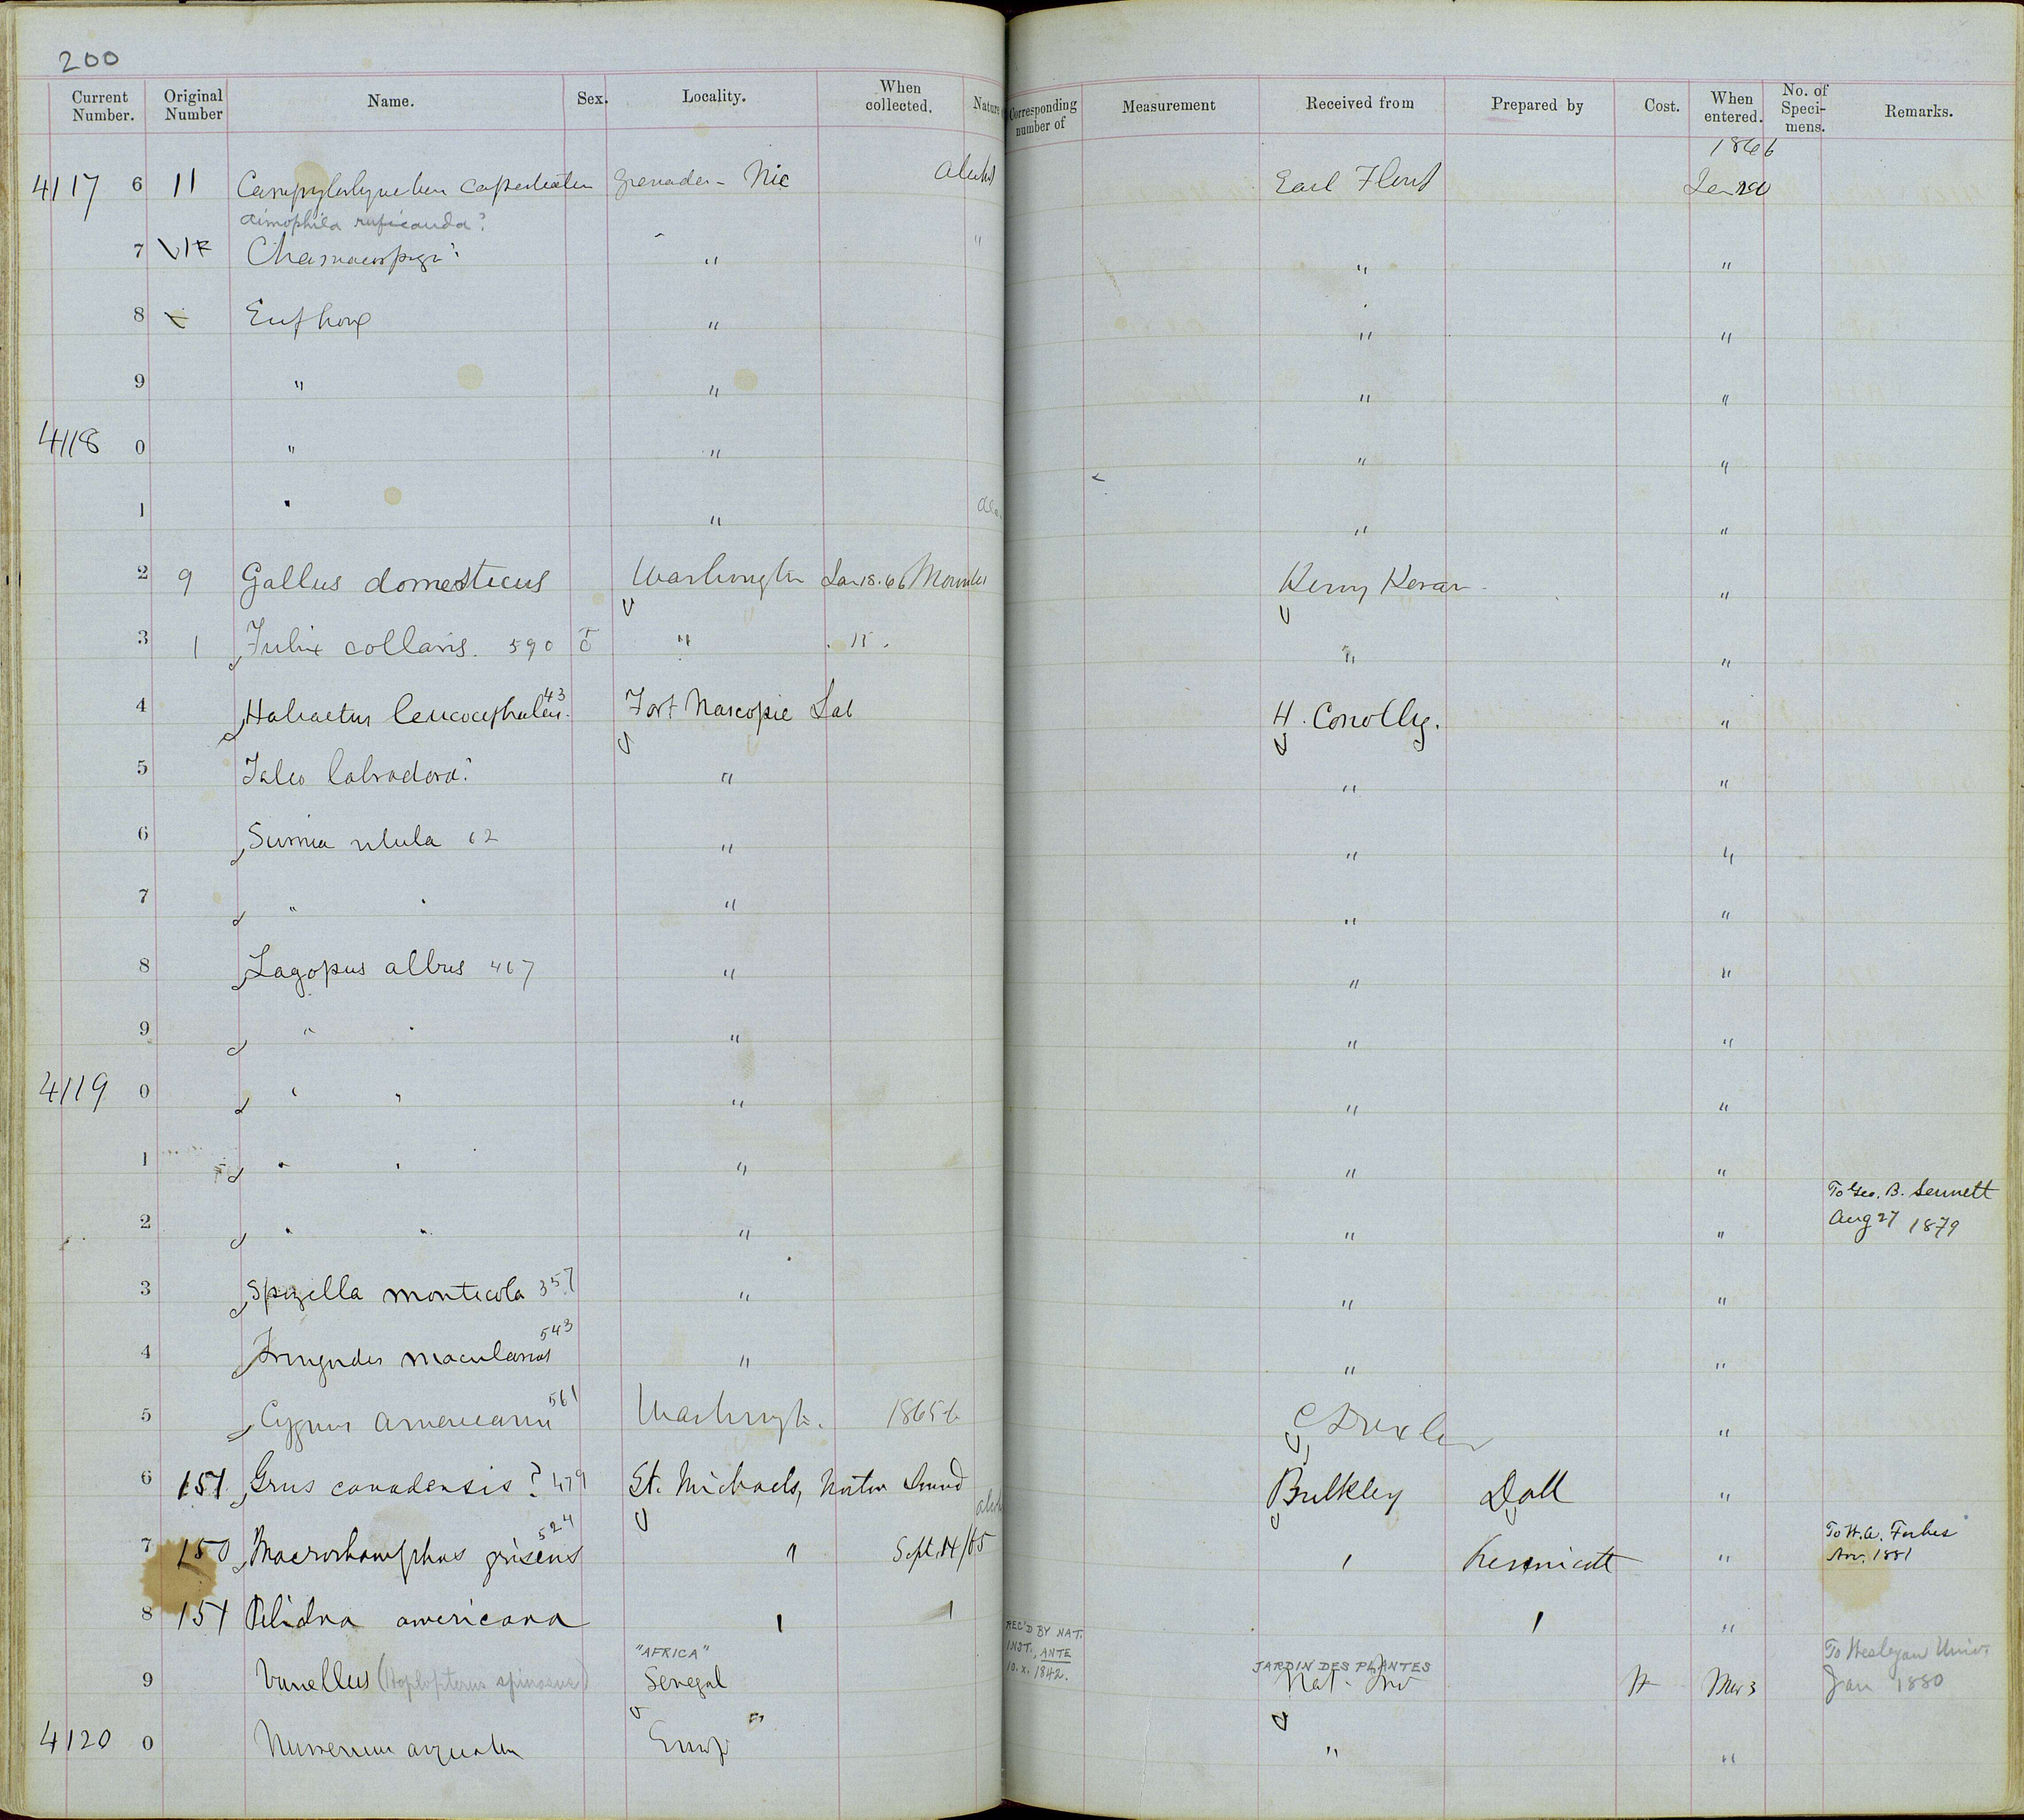 200
Current Number. Original Number Name. Sex. Locality. When collected. Nature Corresponding number of Measurement Received from Prepared by Cost. When entered. No. of Speci-mens. Remarks.
1866
4117 6 11 Grenada - Nic Alcohol Earl Flint Jan 20
Aimophila ruficauda?
7 " " " "
8 " " "
9 " " " "
4118 0 " " " "
1 " " "
2 9 Gallus domesticus Washington Jan 18. 66 "
3 1 Fulix collaris. 590 " 15. " "
4 Haliaetus leucocephalus 43 Fort Nascopie Lab H. Conolly. "
5 Falco labradora? " " "
6 Surnia ulula 62 " " "
7 " " " "
8 Lagopus albus 467 " " "
9 " " " "
4119 0 " " "
1 " " "
2 " " " To Geo. B. Sennett
Aug 27 1879
3 Spizella monticola 357 " " "
4 Tringoides macularius 543 " " "
5 Cygnus americanus 561 Washington. C Drexler "
6 151 Grus canadensis? 479 St. Michaels, Norton Sound Bulkley Dall "
7 150 Macrorhamphus griseus 524 " Sept. 14/65 " Kennicott " To W.A. Forbes
Nov. 1881
8 151 Pelidna americana " " " "
"AFRICA" REC'D BY NAT. INST., ANTE 10.X.1842. JARDIN DES PLANTES To Wesleyan Univ.
9 Vanellus (Hoplopterus spinosus) Senegal Nat. Inst Mar 3 Jan 1880
4120 0 Numenius arquata Europ " "